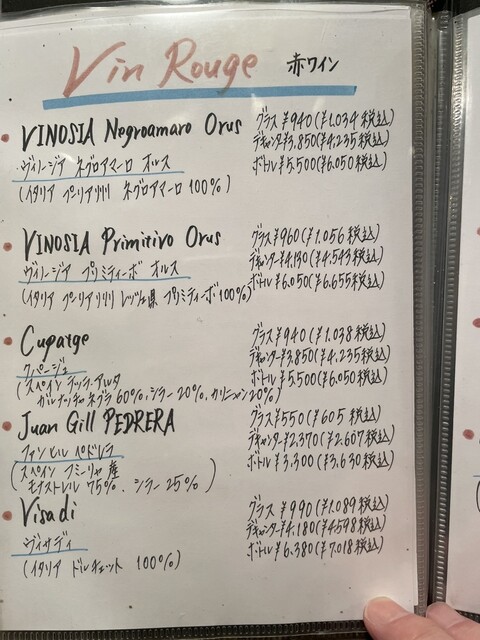 Vin Rouge 赤ワイン
VINOSIA Negroamaro Orus グラス ¥940(¥1.034税込)
デキャンター¥3,850(¥4,235税込)
ヴィノージア ネグロアマーロ オルス ボトル ¥5.500(¥6.050税込)
(イタリア プーリア州 ネグロアマーロ 100%)
VINOSIA Primitivo Orus グラス ¥960(¥1.056税込)
デキャンター¥4,130(¥4.543税込)
ヴィノージア プリミティーボ オルス ボトル ¥6.050(¥6.655税込)
(イタリア プーリア州 レッジェ県 プリミティーボ100%)
Cuparge グラス ¥940(¥1.038税込)
デキャンター¥3.850(¥4.235税込)
クパージュ ボトル ¥5.500(¥6.050税込)
(スペイン テッラ・アルタ
ガルナッチャネグラ 60%、シラー 20%、カリニャン20%)
Juan Gill PEDRERA グラス ¥550(¥605税込)
デキャンター¥2.370(¥2.607税込)
ファンヒル ペドレラ ボトル ¥3,300(¥3,630税込)
(スペイン フミーリャ産
モナストレル 75%、シラー 25%)
Visadi グラス ¥990(¥1.089税込)
デキャンター¥4.180(¥4598税込)
ヴィサディ ボトル ¥6.380(¥7.018税込)
(イタリア ドルチェット 100%)